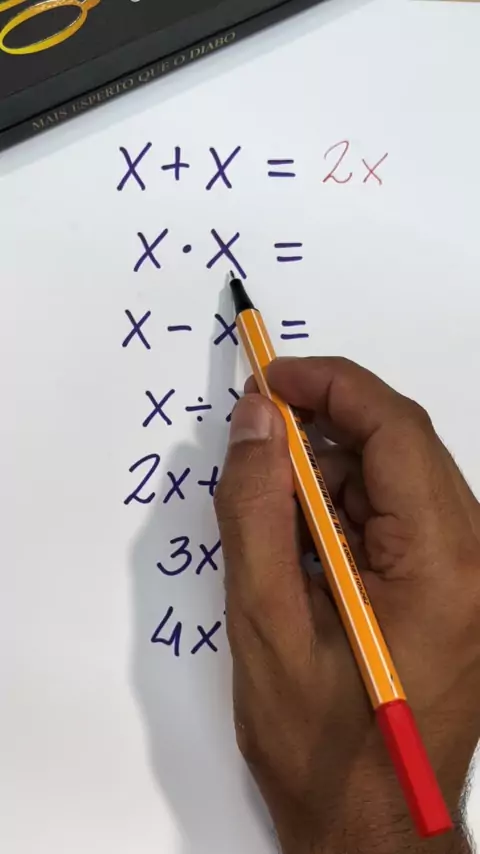 MAIS ESPERTO QUE O DIABO
x + x = 2x
x · x =
x − x =
x ÷
2x +
3x
4x